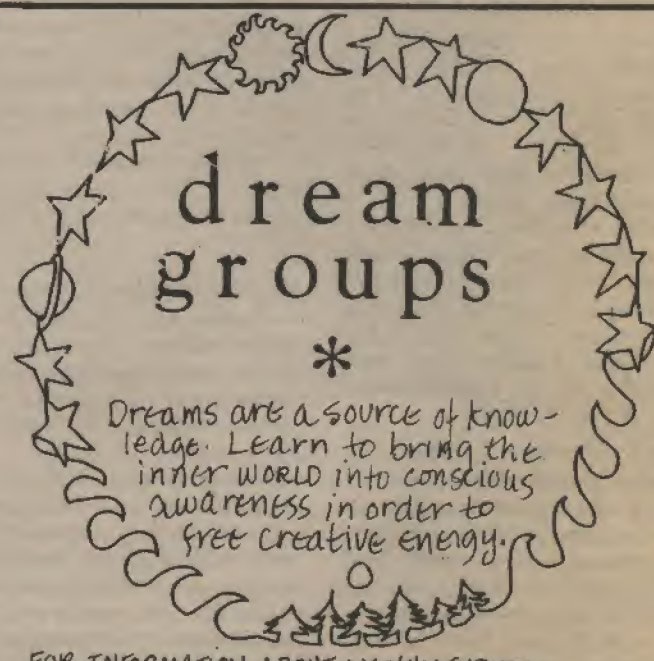 dream
groups
*
Dreams are a source of know-
ledge. Learn to bring the
inner WORLD into conscious
awareness in order to
free creative energy.
FOR INFORMATION ABOUT